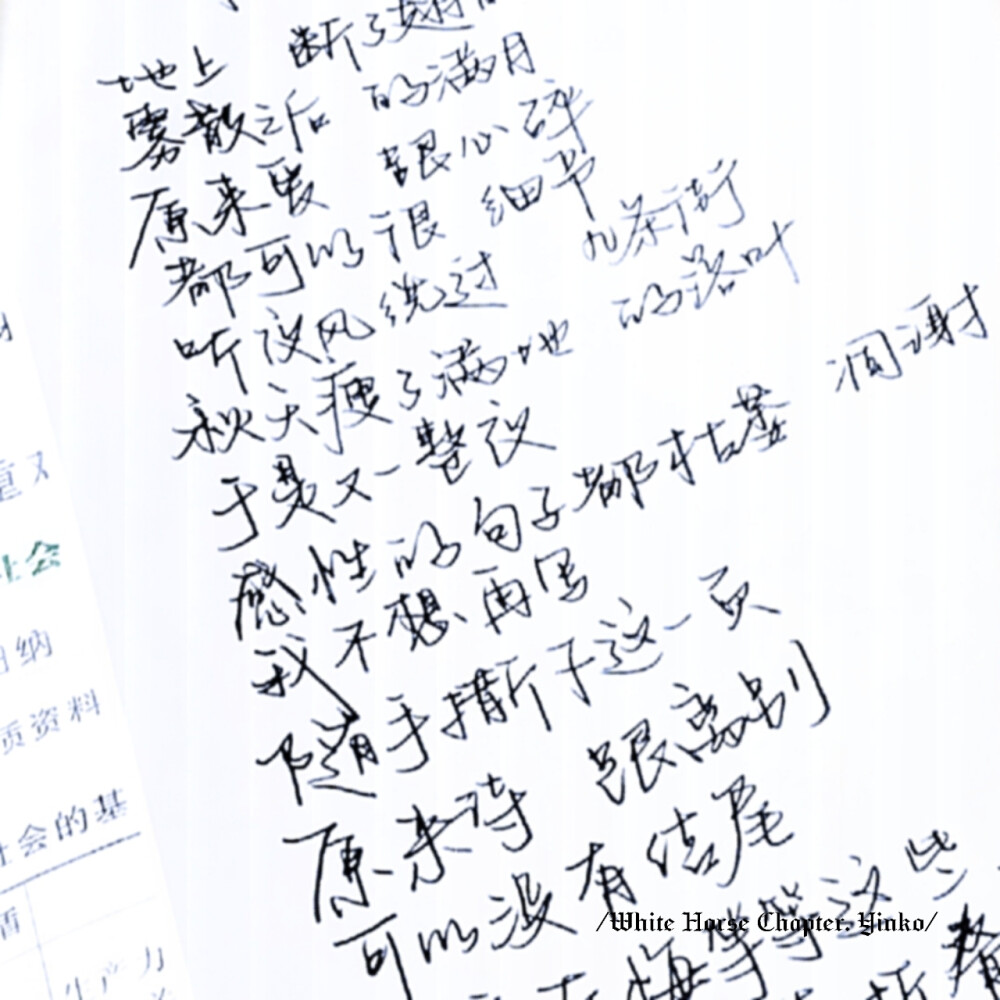 地上 断了翅
雾散之后 的满月
原来爱 跟心碎
都可以很 细节
听夜风绕过 几条街
秋天瘦了满地 的落叶
于是又一整夜
感性的句子都枯萎 凋谢
我不想再写
随手撕下这一页
原来诗 跟离别
可以没有结尾
悔等等这些
重又
社会
归纳
质资料
社会的基
盾
生产力
/White Horse Chapter. Yinko/